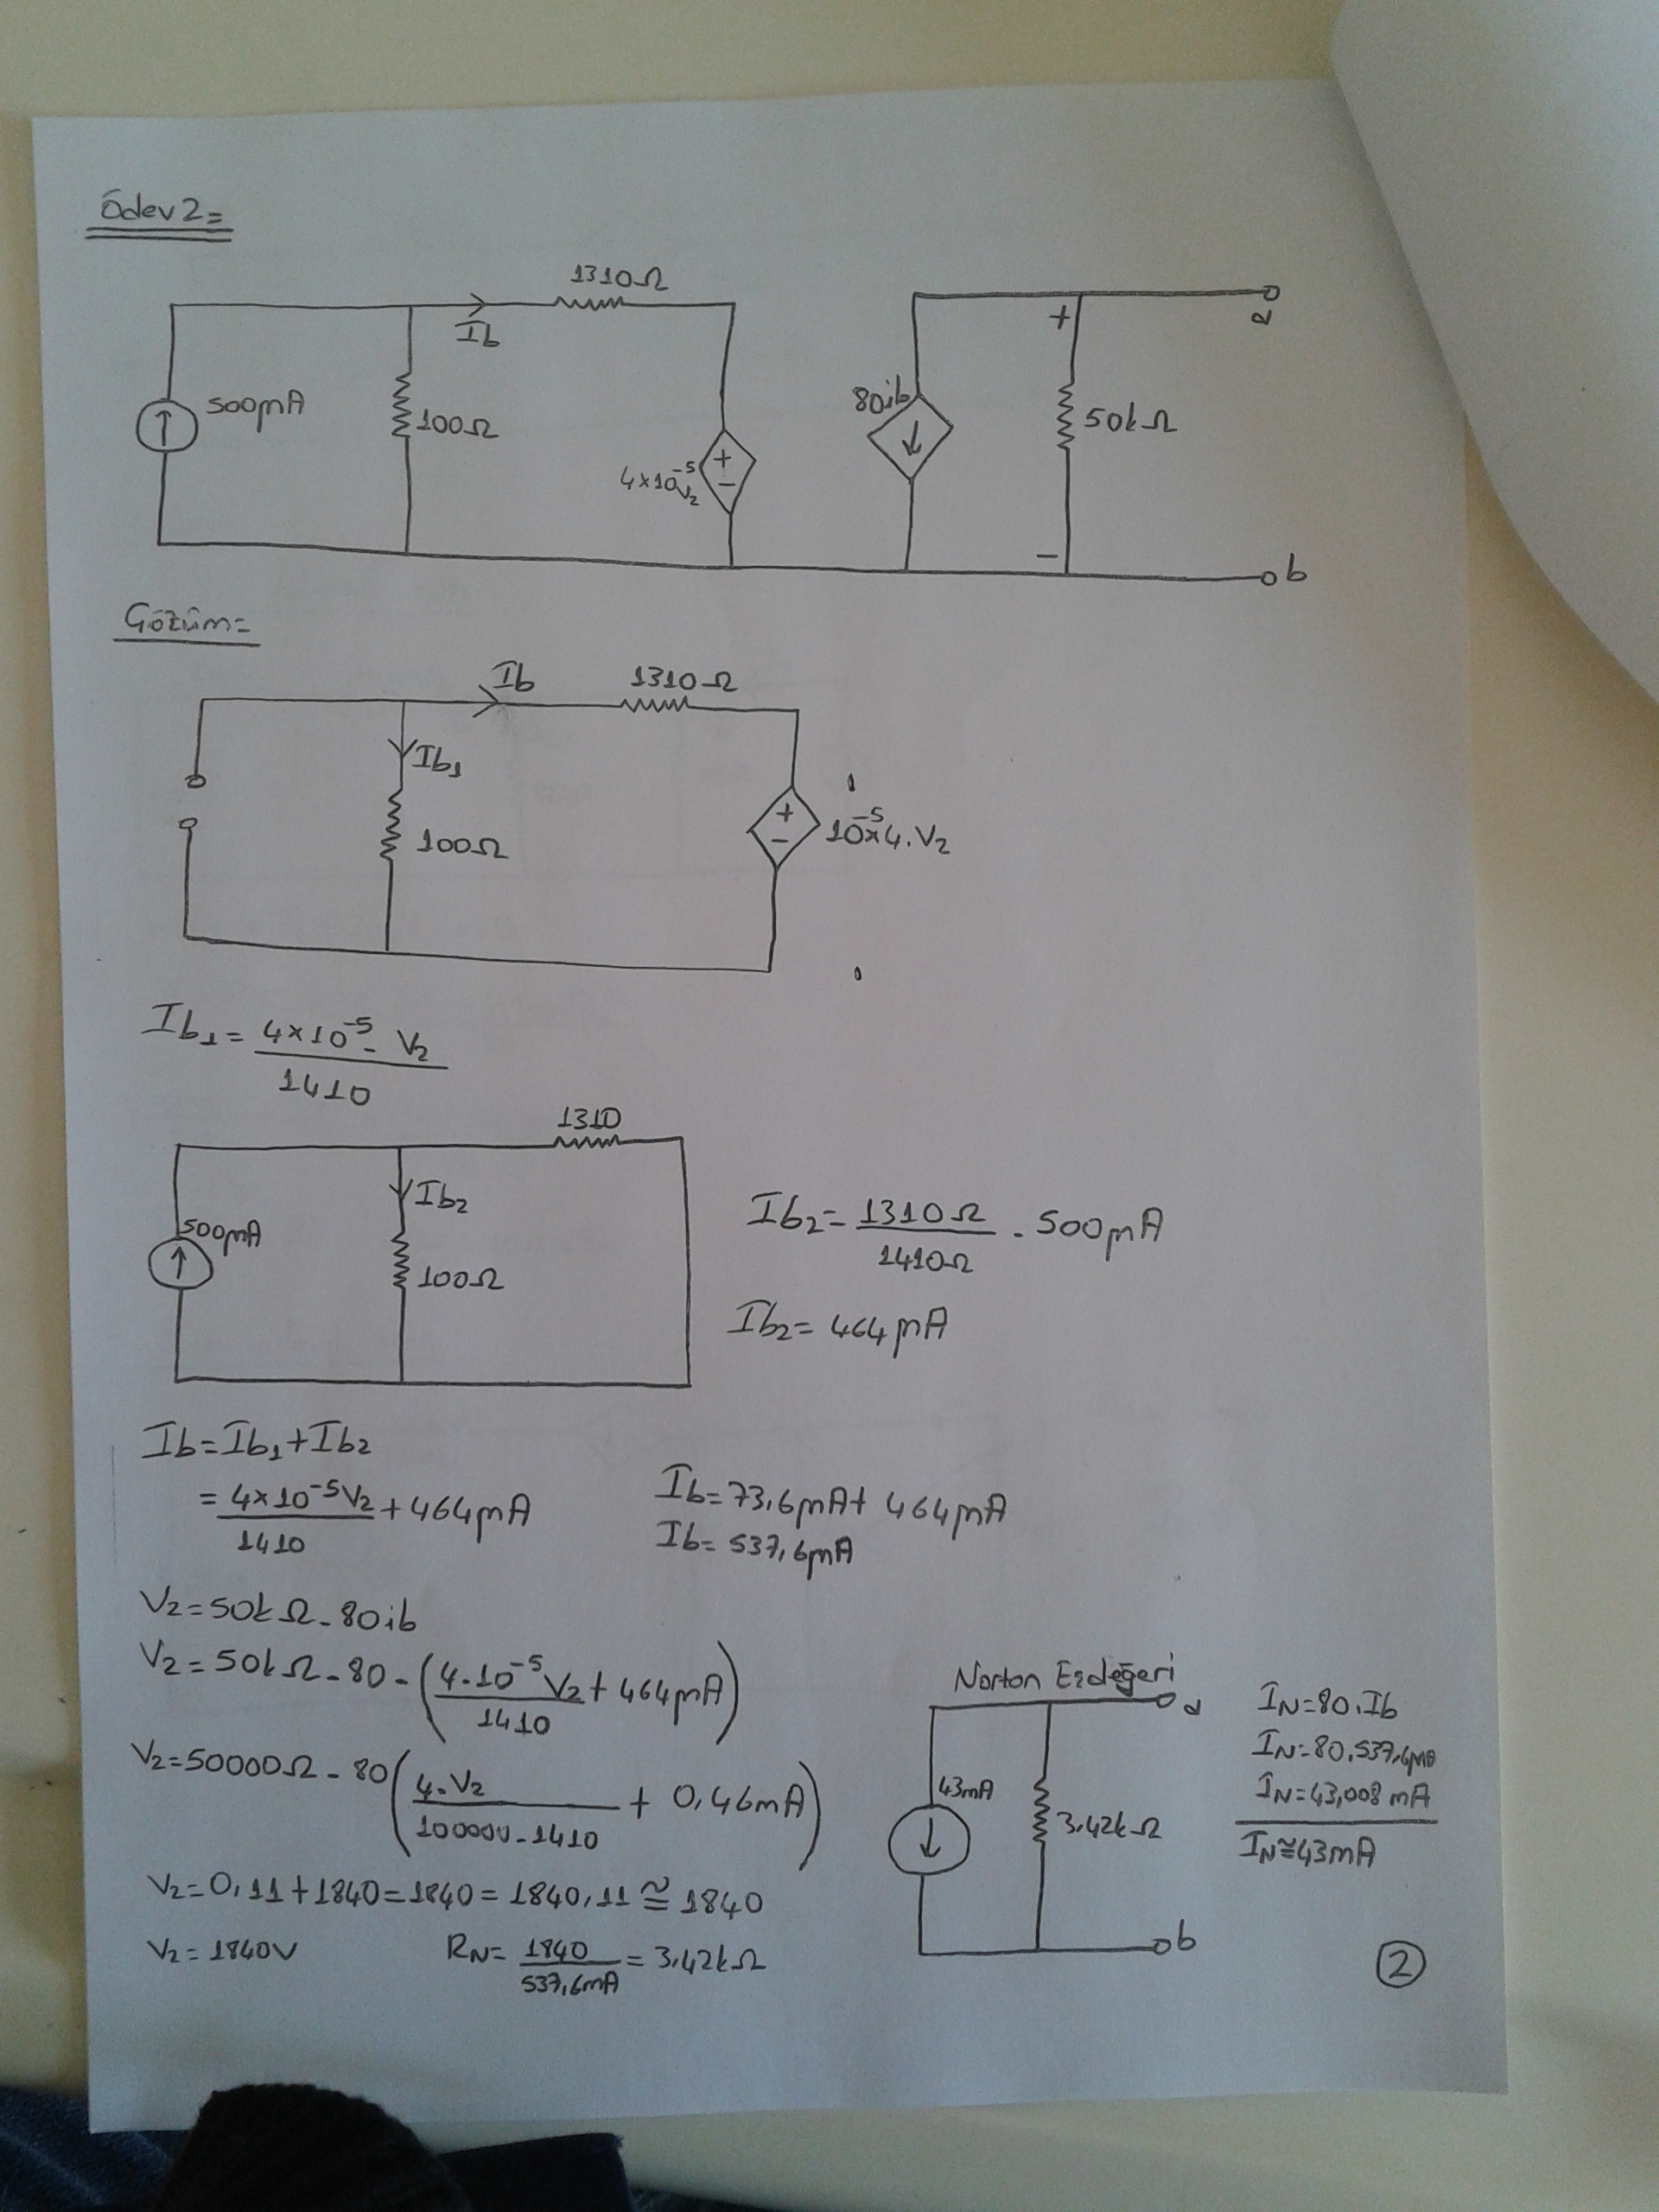 Ödev 2=
1310Ω
Ib
500mA
100Ω
4×10⁻⁵V₂
+
−
80ib
+
−
50kΩ
a
b
Çözüm=
Ib
1310Ω
Ib₁
100Ω
+
−
10⁻⁵×4.V₂
Ib₁= 4×10⁻⁵. V₂ / 1410
1310
500mA
Ib₂
100Ω
Ib₂= 1310Ω / 1410Ω . 500mA
Ib₂= 464mA
Ib=Ib₁+Ib₂
= 4×10⁻⁵V₂ / 1410 + 464mA
Ib=73,6mA+ 464mA
Ib= 537,6mA
V₂=50kΩ.80ib
V₂=50kΩ.80.(4.10⁻⁵V₂ / 1410 + 464mA)
V₂=50000Ω.80(4.V₂ / 100000.1410 + 0,46mA)
V₂=0,11+1840=1840=1840,11≅1840
V₂= 1840V
RN= 1840 / 537,6mA = 3,42kΩ
Norton Eşdeğeri
43mA
3.42kΩ
a
b
IN=80.Ib
IN=80.537,6mA
IN=43,008 mA
IN≅43mA
2